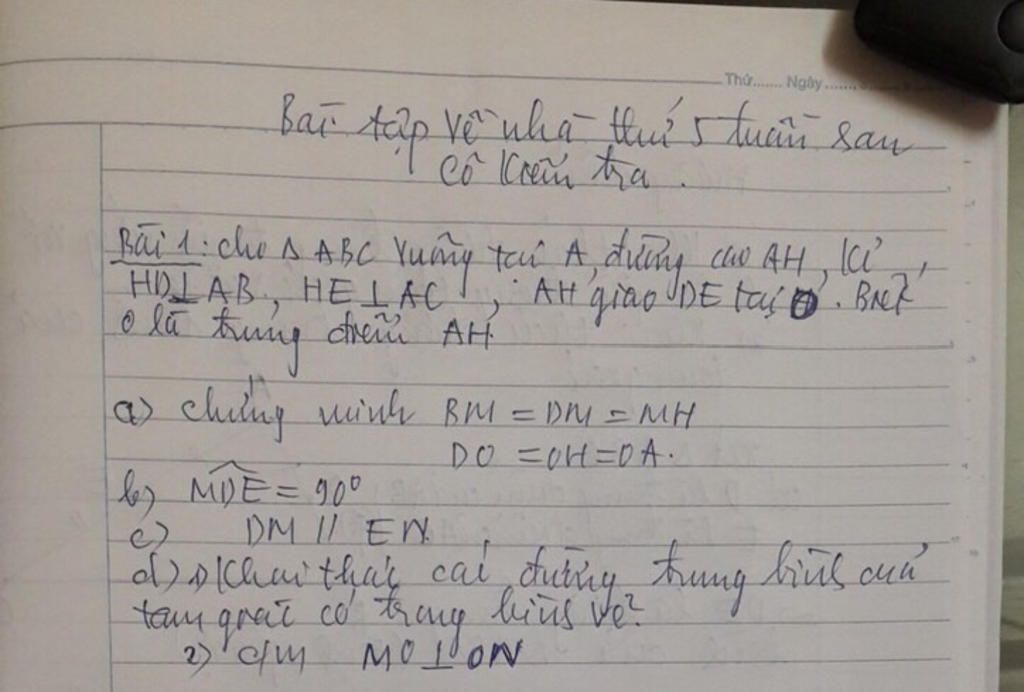 Thứ....... Ngày.......
Bài tập về nhà thứ 5 tuần sau
Cô kiểm tra.
Bài 1: cho Δ ABC vuông tại A, đường cao AH, kẻ
HD⊥AB, HE⊥AC, AH giao DE tại O. Biết
O là trung điểm AH.
a) chứng minh BM = DM = MH
DO = OH = OA.
b) \widehat{MDE} = 90°
c) DM // EN.
d) 1) Khai thác các đường trung bình của
tam giác có trong hình vẽ?
2) c/m MO⊥ON